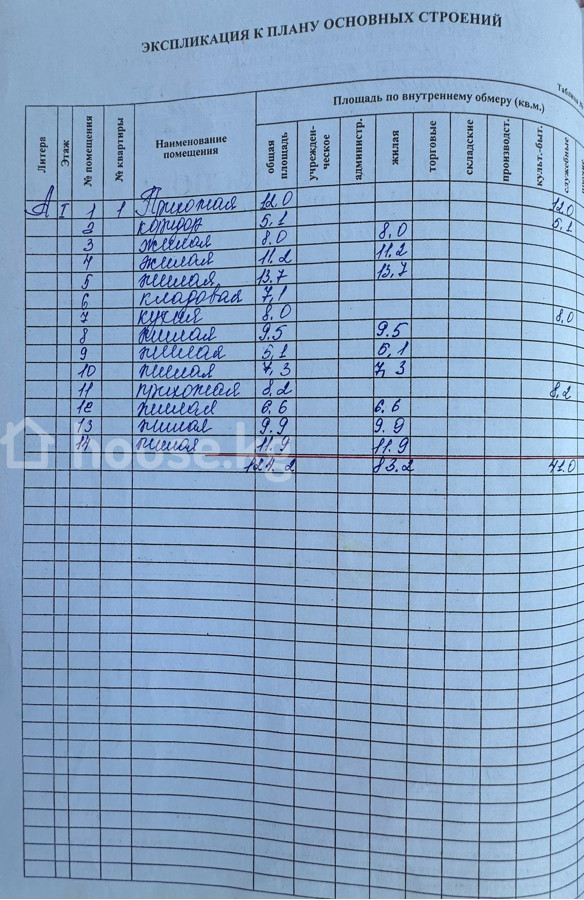 ЭКСПЛИКАЦИЯ К ПЛАНУ ОСНОВНЫХ СТРОЕНИЙ
Таблица
Площадь по внутреннему обмеру (кв.м.)
Литера Этаж № помещения № квартиры Наименование помещения общая площадь учрежден-ческое администр. жилая торговые складские производст. культ.-быт. служебные
А I 1 1 Прихожая 12.0 12.0
2 коридор 5,1 5,1
3 жилая 8.0 8.0
4 жилая 11.2 11.2
5 жилая 13,7 13,7
6 кладовая 7,1
7 кухня 8.0 8,0
8 жилая 9.5 9.5
9 жилая 5,1 5,1
10 жилая 7,3 7,3
11 прихожая 8.2 8,2
12 жилая 6.6 6.6
13 жилая 9.9 9.9
14 жилая 11.9 11.9
124.2 83.2 41.0
hoose.kg